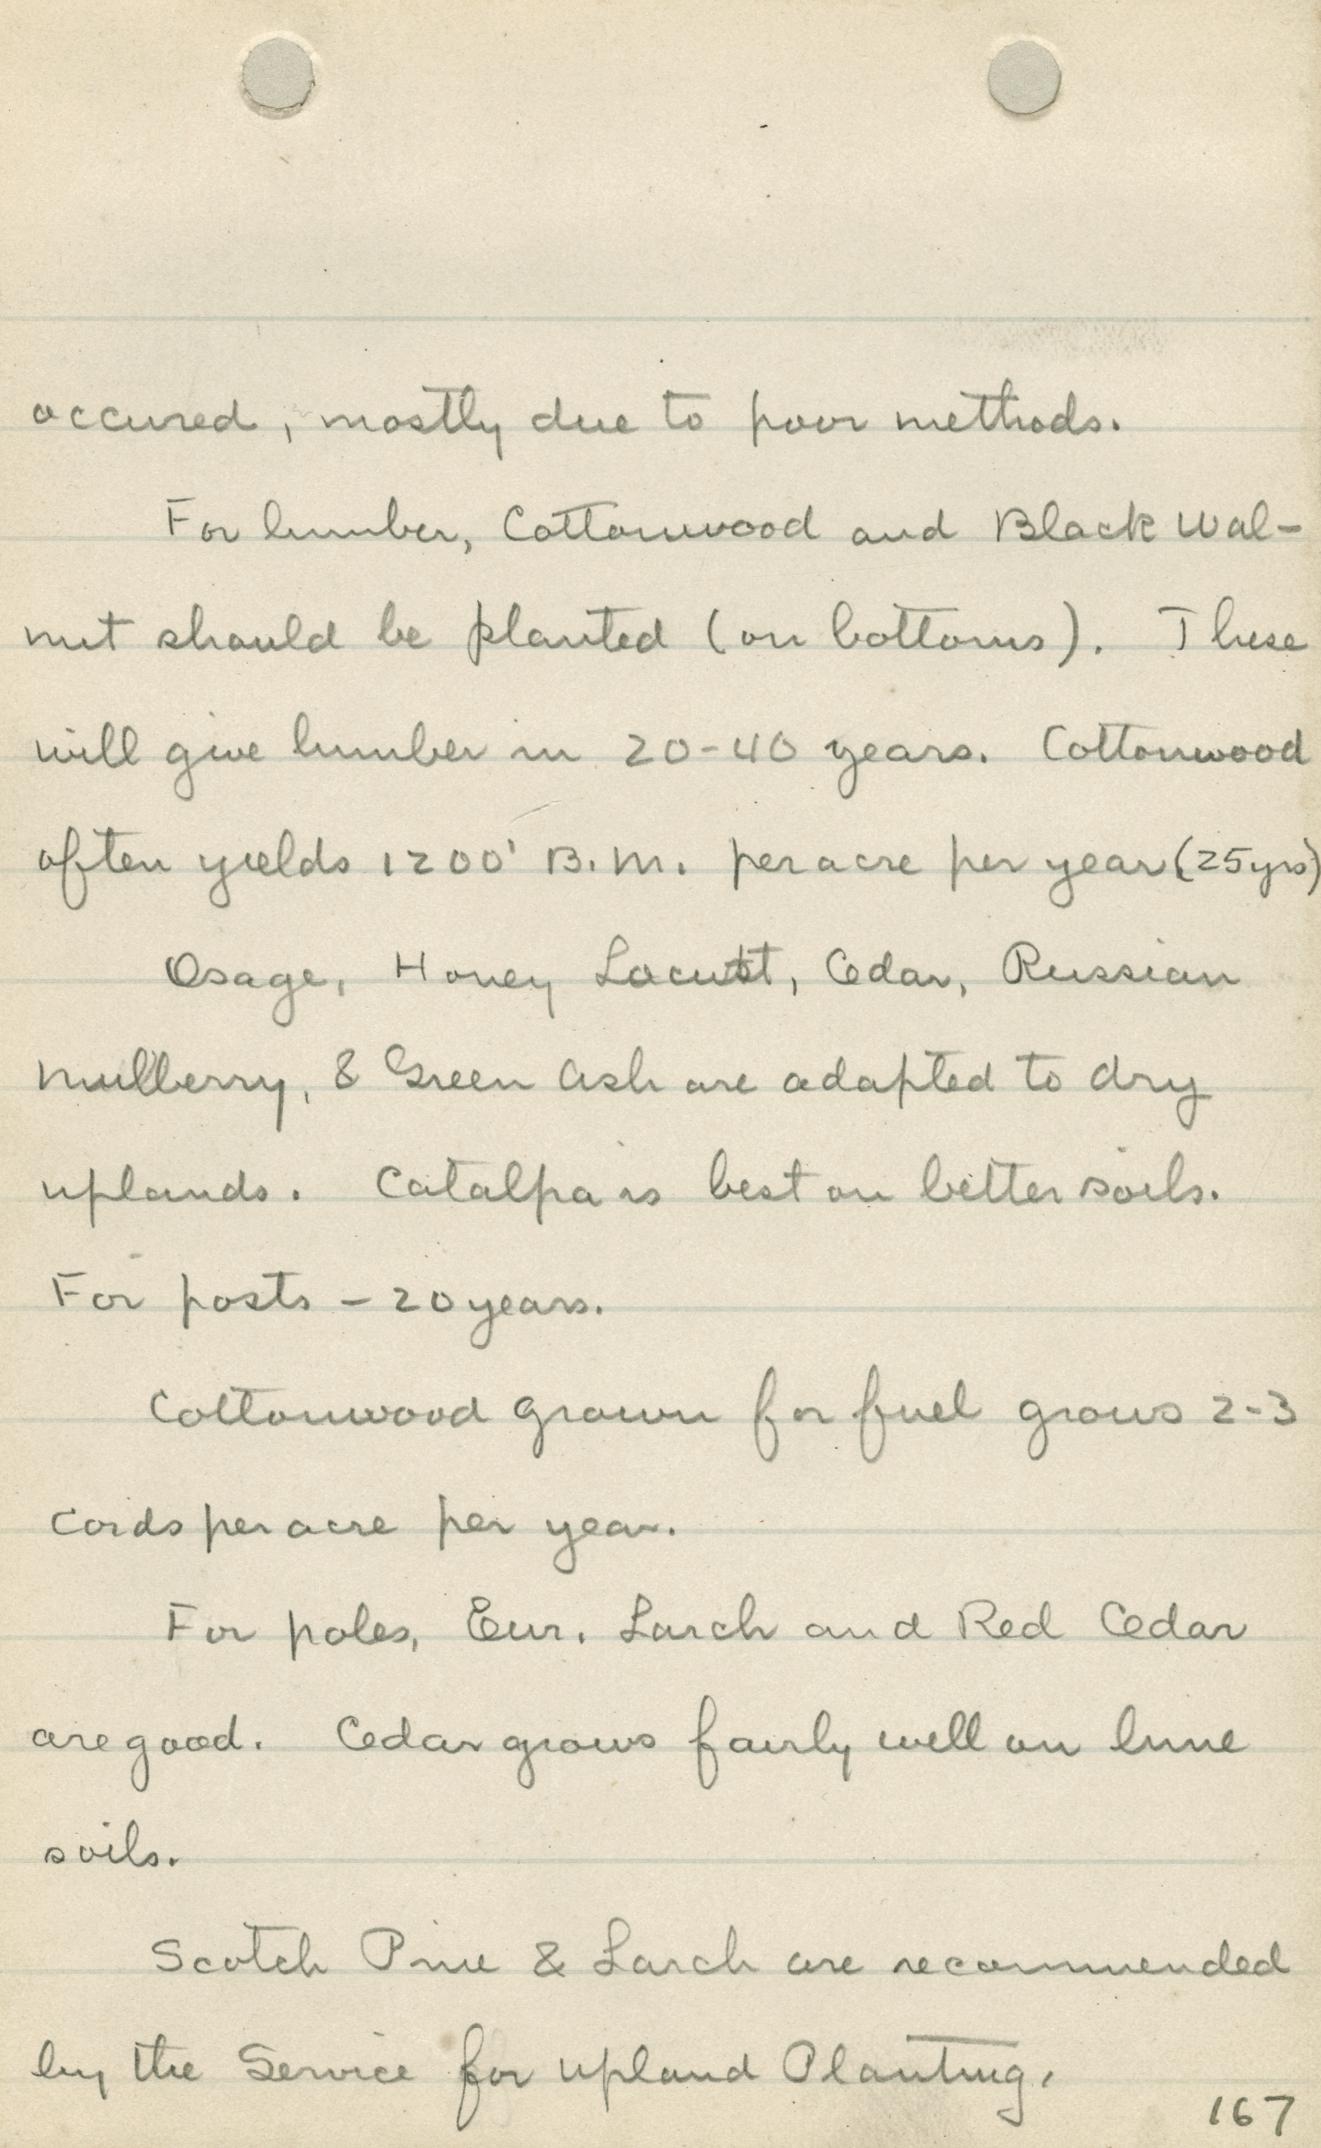 occured, mostly due to poor methods.
For lumber, Cottonwood and Black Wal-
nut should be planted (on bottoms). These
will give lumber in 20-40 years. Cottonwood
often yields 1200' B.M. per acre per year (25yrs)
Osage, Honey Locust, Cedar, Russian
Mulberry, & Green Ash are adapted to dry
uplands. Catalpa is best on better soils.
For posts - 20 years.
Cottonwood grown for fuel grows 2-3
cords per acre per year.
For poles, Eur. Larch and Red Cedar
are good. Cedar grows fairly well on lime
soils.
Scotch Pine & Larch are recommended
by the Service for upland Planting.
167